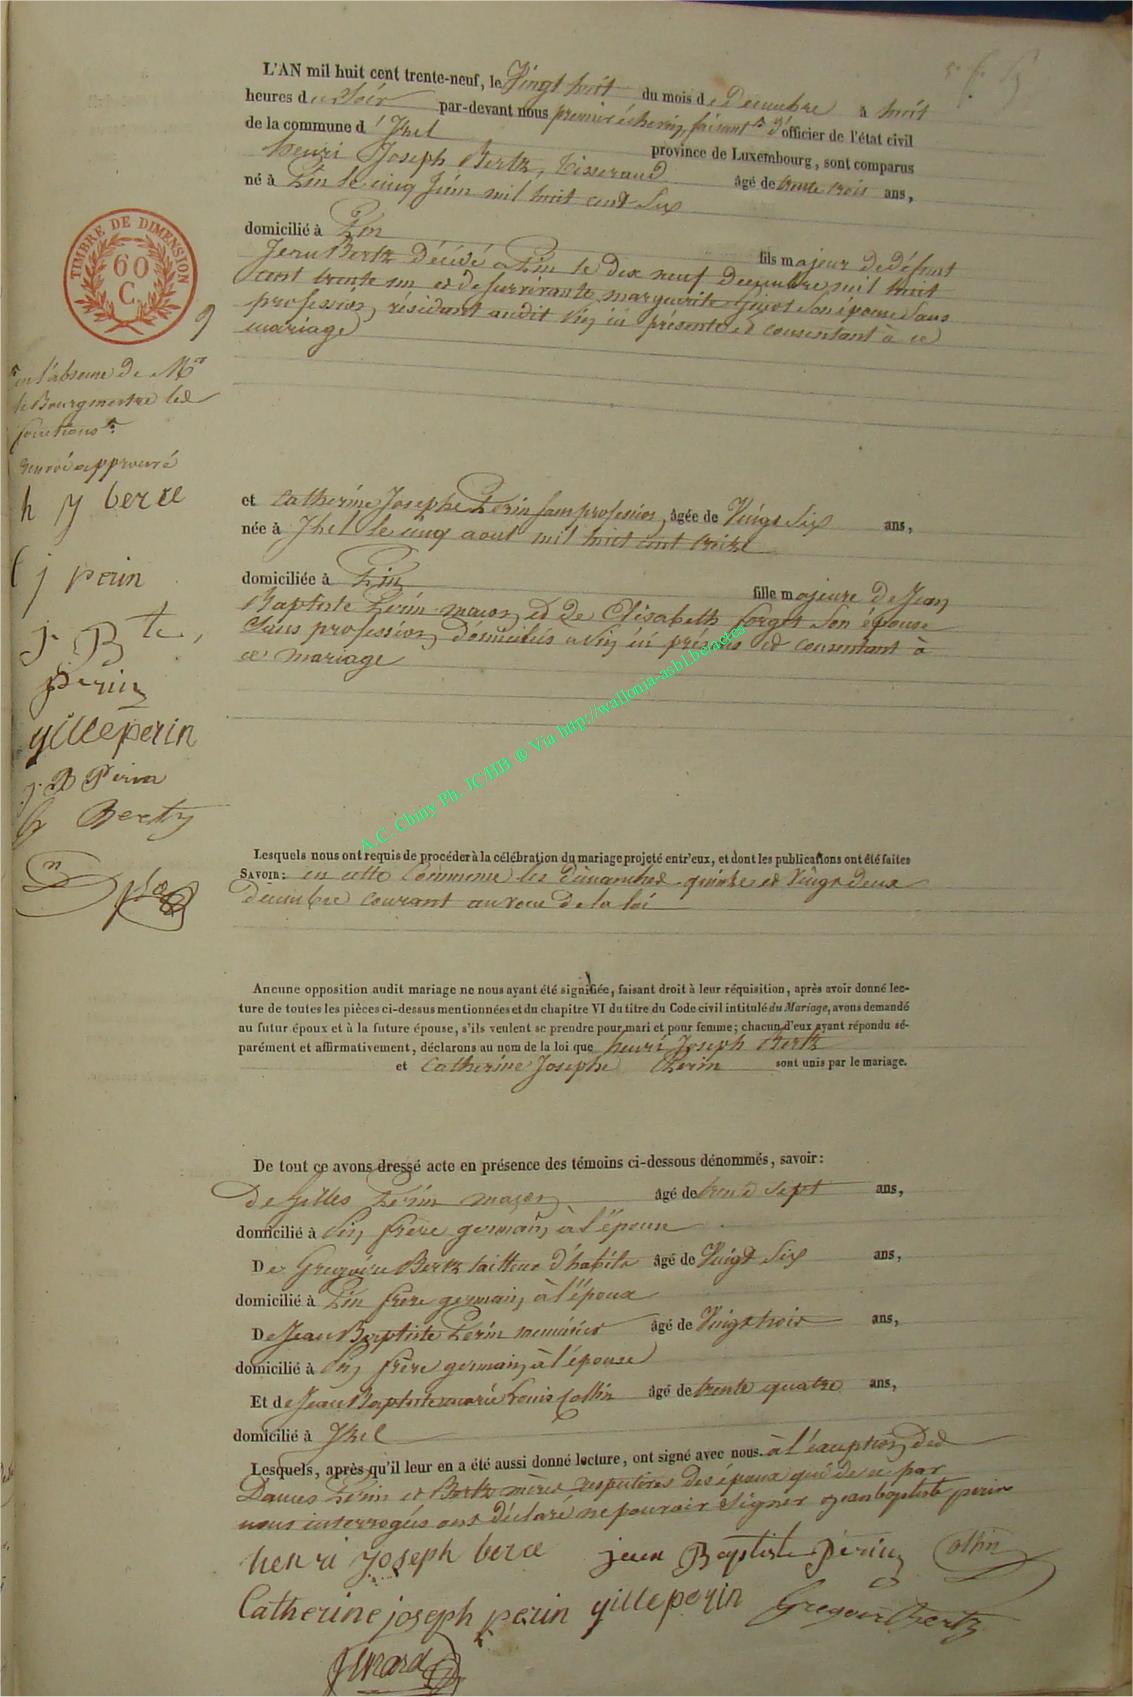 L'AN mil huit cent trente-neuf, le Vingt huit du mois de Decembre à huit
heures du Soir par-devant nous premier échevin faisant d'officier de l'état civil
de la commune d'Izel province de Luxembourg, sont comparus
henri Joseph Bertz, Tisserand âgé de trente trois ans,
né à Pin le cinq Juin mil huit cent Six
domicilié à Pin
fils majeur de défunt
Jean Bertz Décédé a Pin le dix neuf Decembre mil huit
cent trente un et de survivante marguerite son épouse Sans
profession, résidant audit Pin ici présente et consentant à ce
mariage
TIMBRE DE DIMENSION
60
C.
en l'absence de Mr
le Bourgmestre les
fonctions
renvoi approuvé
h y berce
C j perin
j. B te,
perin
gille perin
j. B Perin
G Bertz
et Catherine Josephe Perin sans profession, âgée de Vingt Six ans,
née à Izel le cinq aout mil huit cent treize
domiciliée à Pin
fille majeure de Jean
Baptiste Perin maçon et de Elisabeth forget Son épouse
Sans profession, domiciliés a Pin ici présens et consentant à
ce mariage
A.C. Chiny Ph. JC/HB ® Via http://wallonia-asbl.be/actes
Lesquels nous ont requis de procéder à la célébration du mariage projeté entr'eux, et dont les publications ont été faites
SAVOIR: en cette Commune les dimanches quinze et Vingt deux
Decembre courant au voeu de la loi
Aucune opposition audit mariage ne nous ayant été signifiée, faisant droit à leur réquisition, après avoir donné lec-
ture de toutes les pièces ci-dessus mentionnées et du chapitre VI du titre du Code civil intitulé du Mariage, avons demandé
au futur époux et à la future épouse, s'ils veulent se prendre pour mari et pour femme; chacun d'eux ayant répondu sé-
parément et affirmativement, déclarons au nom de la loi que henri Joseph Bertz
et Catherine Josephe Perin sont unis par le mariage.
De tout ce avons dressé acte en présence des témoins ci-dessous dénommés, savoir:
De Gilles Perin maçon âgé de trente sept ans,
domicilié à Pin, frère germain à l'épouse
De Gregoire Bertz tailleur d'habits âgé de Vingt Six ans,
domicilié à Pin frere germain, à l'époux
De Jean Baptiste Perin menuisier âgé de Vingt trois ans,
domicilié à Pin, frère germain, à l'épouse
Et de Jean Baptiste marie Louis Collin âgé de trente quatre ans,
domicilié à Izel
Lesquels, après qu'il leur en a été aussi donné lecture, ont signé avec nous. à l'exception des
Dames Perin et Bertz mères respectives des époux qui de ce par
nous interrogés ont déclaré ne pouvoir Signer jean baptiste perin
henri joseph berce jean Baptiste Périn Collin
Catherine joseph perin gille perin Gregoir Bertz